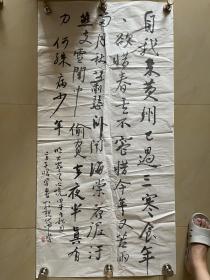 自我来黄州已過三寒食年
々欲惜春去不容惜今年又苦雨
两月秋蕭瑟卧聞海棠花泥汙
燕支雪闇中偷負去夜半真有
力何殊病少年